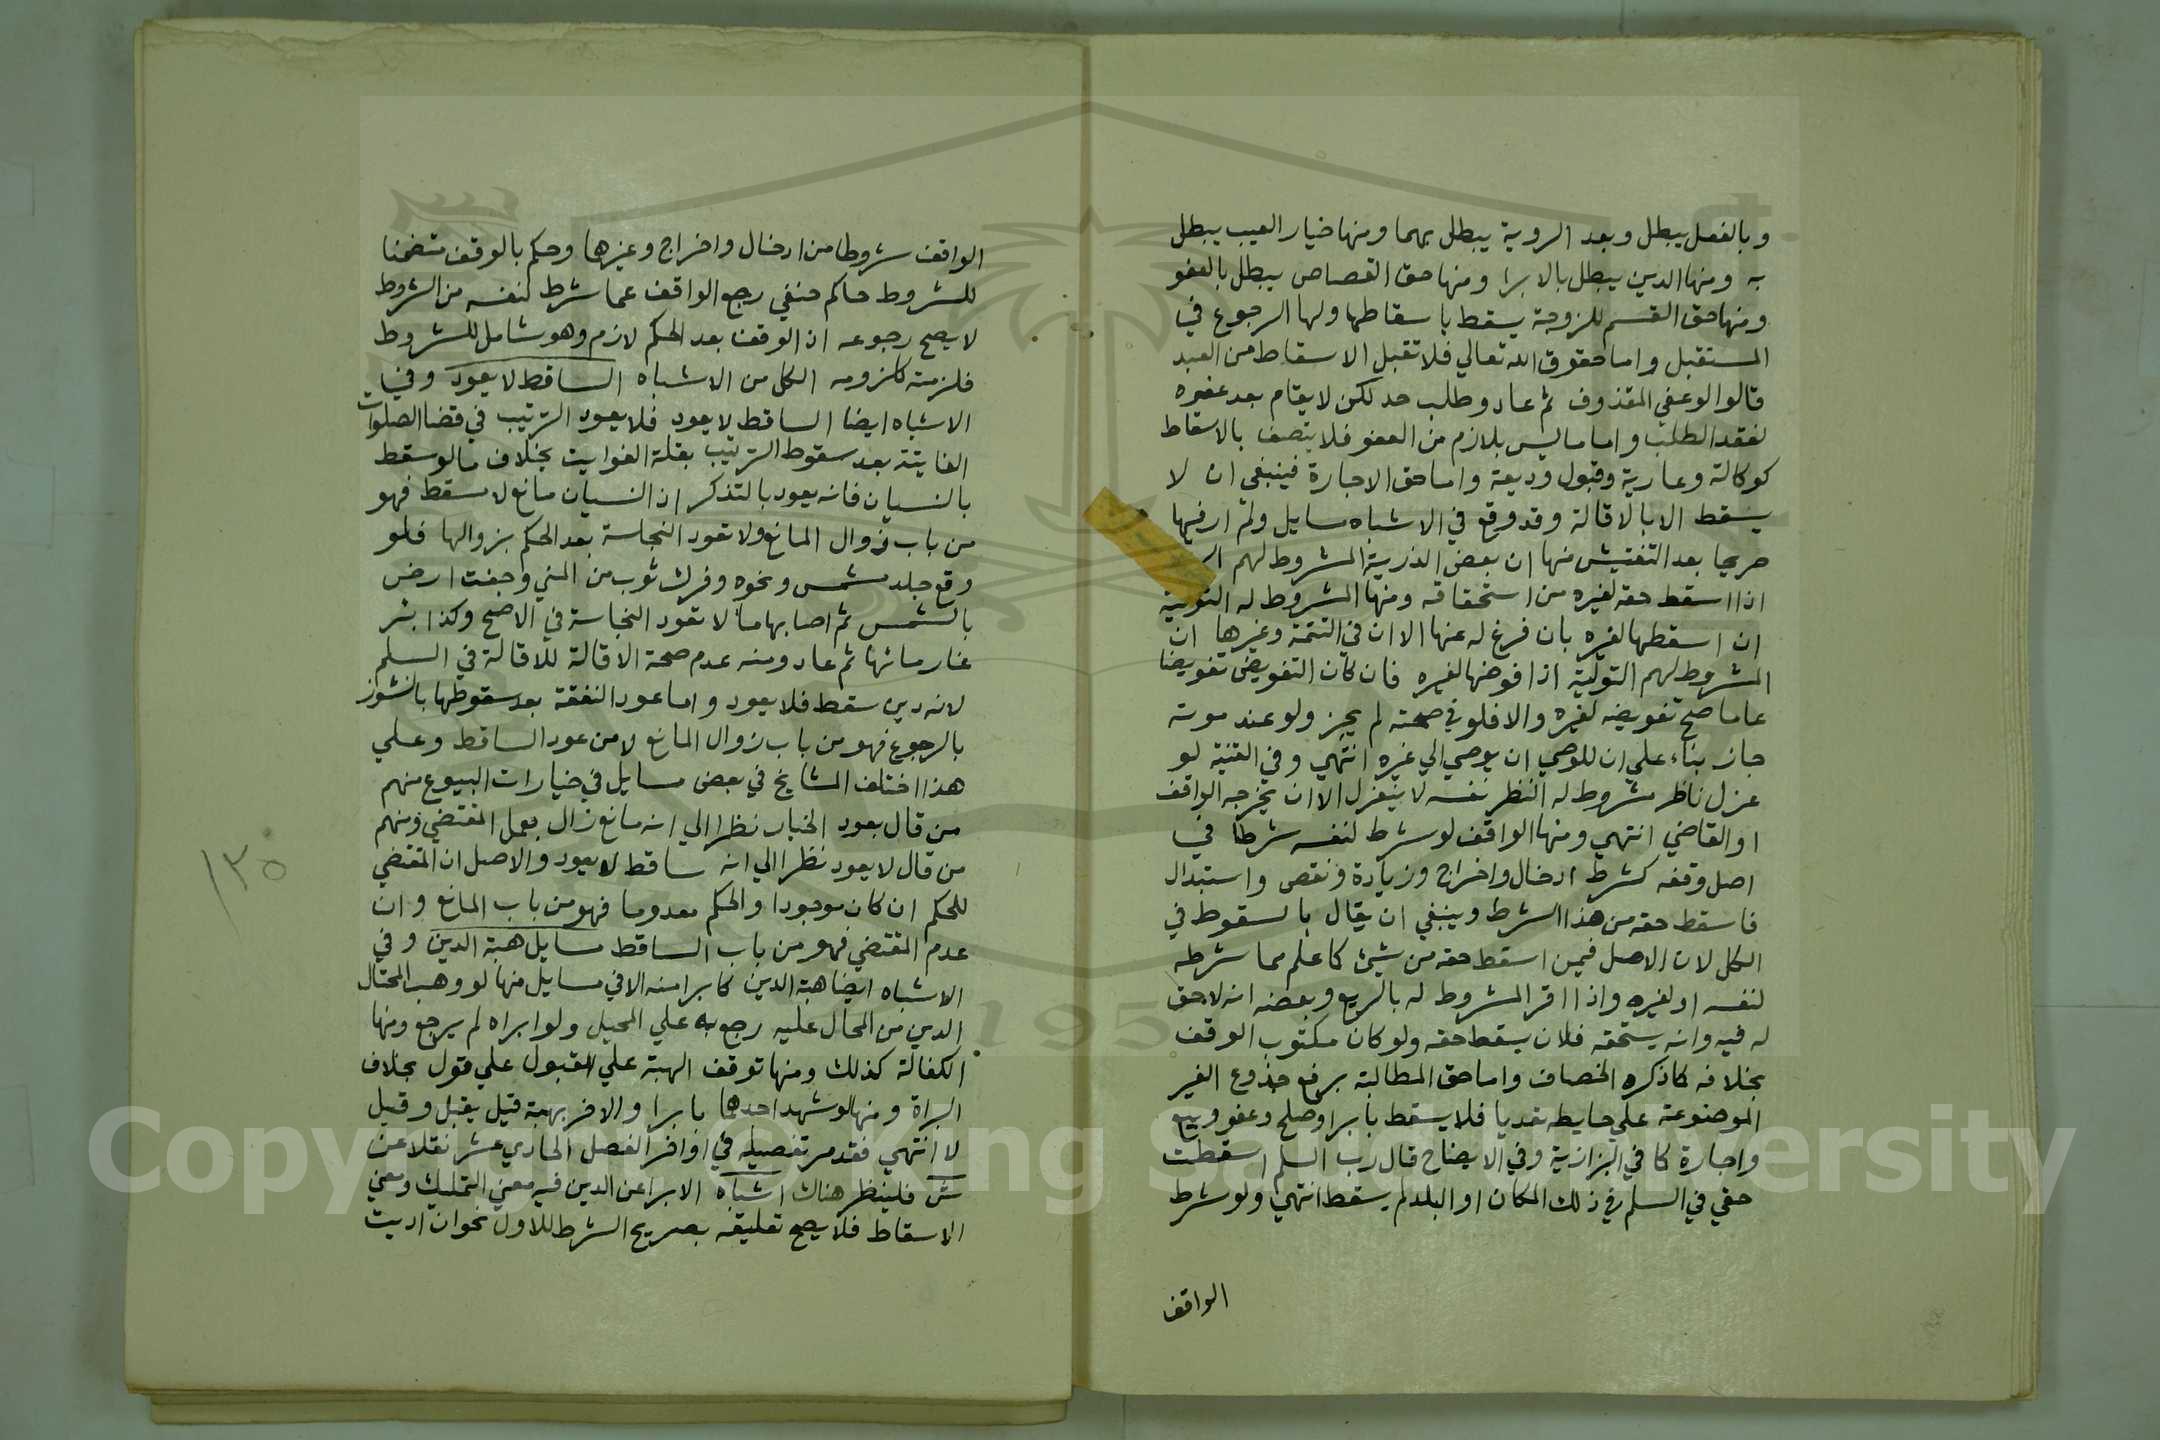 وبالفعل يبطل وبعد الروية يبطل بهما ومنها خيار العيب يبطل
به ومنها الدين يبطل بالابرا ومنها حق القصاص يبطل بالعفو
ومنها حق القسم للزوجة يسقط باسقاطها ولها الرجوع في
المستقبل واما حقوق الله تعالي فلا تقبل الاسقاط من العبد
قالوا لو عفي المقذوف ثم عاد وطلب حد لكن لا يقام بعد عفوه
لفقد الطلب واما ما ليس بلازم من العفو فلا يتصف بالاسقاط
كوكالة وعارية وقبول وديعة واما حق الاجارة فينبغي ان لا
يسقط الا بالاقالة وقد وقع في الاشباه مسايل ولم ار فيها
صريحا بعد التفتيش منها ان بعض الذرية المشروط لهم
اذا اسقط حقه لغيره من استحقاقه ومنها المشروط له التولية
ان اسقطها لغيره بان فرغ له عنها الا ان في التتمة وغيرها ان
المشروط لهم التولية اذا فوضها لغيره فان كان التفويض تفويضا
عاما صح تفويضه لغيره والا فلو في صحته لم يجز ولو عند موته
جاز بناء علي ان للوصي ان يوصي الي غيره انتهي وفي القنية لو
عزل ناظر مشروط له النظر نفسه لا ينعزل الا ان يخرجه الواقف
او القاضي انتهي ومنها الواقف لو شرط لنفسه شرطا في
اصل وقفه كشرط ادخال واخراج وزيادة ونقص واستبدال
فاسقط حقه من هذا الشرط وينبغي ان يقال بالسقوط في
الكل لان الاصل فيمن اسقط حقه من شيئ كما علم مما شرطه
لنفسه او لغيره واذا اقر المشروط له بالريع وبعضه انه لا حق
له فيه وانه يستحقه فلان يسقط حقه ولو كان مكتوب الوقف
بخلافه كما ذكره الخصاف واما حق المطالبة برفع جذوع الغير
الموضوعة علي حايطه تعديا فلا يسقط بابرا وصلح وعفو وبيع
واجارة كما في البزازية وفي الايضاح قال رب السلم اسقطت
حقي في السلم في ذلك المكان او البلد لم يسقط انتهي ولو شرط
الواقف
الواقف شروطا من ادخال واخراج وغيرها وحكم بالوقف متضمنا
للشروط حاكم حنفي رجع الواقف عما شرط لنفسه من الشروط
لا يصح رجوعه اذ الوقف بعد الحكم لازم وهو شامل للشروط
فلزمته كلزومه الكل من الاشباه الساقط لا يعود وفي
الاشباه ايضا الساقط لا يعود فلا يعود الترتيب في قضا الصلوات
الفايتة بعد سقوط الترتيب بقلة الفوايت بخلاف ما لو سقط
بالنسيان فانه يعود بالتذكر اذ النسيان مانع لا مسقط فهو
من باب زوال المانع ولا تعود النجاسة بعد الحكم بزوالها فلو
وقع جلد مشمس ونحوه وفرك ثوب من المني وجفت ارض
بالشمس ثم اصابها ما لا تعود النجاسة في الاصح وكذا بئر
غار ماؤها ثم عاد ومنه عدم صحة الاقالة للاقالة في السلم
لانه دين سقط فلا يعود واما عود النفقة بعد سقوطها بالنشوز
بالرجوع فهو من باب زوال المانع لا من عود الساقط وعلي
هذا اختلف المشايخ في بعض مسايل في خيارات البيوع منهم
من قال يعود الخيار نظرا الي انه مانع زال بعمل المقتضي ومنهم
من قال لا يعود نظرا الي انه ساقط لا يعود والاصل ان المقتضي
للحكم ان كان موجودا والحكم معدوما فهو من باب المانع وان
عدم المقتضي فهو من باب الساقط مسايل هبة الدين وفي
الاشباه ايضا هبة الدين كابرا منه الا في مسايل منها لو وهب المحتال
الدين من المحال عليه رجع به علي المحيل ولو ابراه لم يرجع ومنها
الكفالة كذلك ومنها توقف الهبة علي القبول علي قول بخلاف
البراة ومنها لو شهد احدهما بابرا والاخر بهبة قيل يقبل وقيل
لا انتهي فقد مر تفصيله في اواخر الفصل الحادي عشر نقلا عن
ش فلينظر هناك اشباه الابرا عن الدين فيه معني التمليك ومعني
الاسقاط فلا يصح تعليقه بصريح الشرط للاول نحو ان اديت
١٣٥
Copyright © King Saud University
195